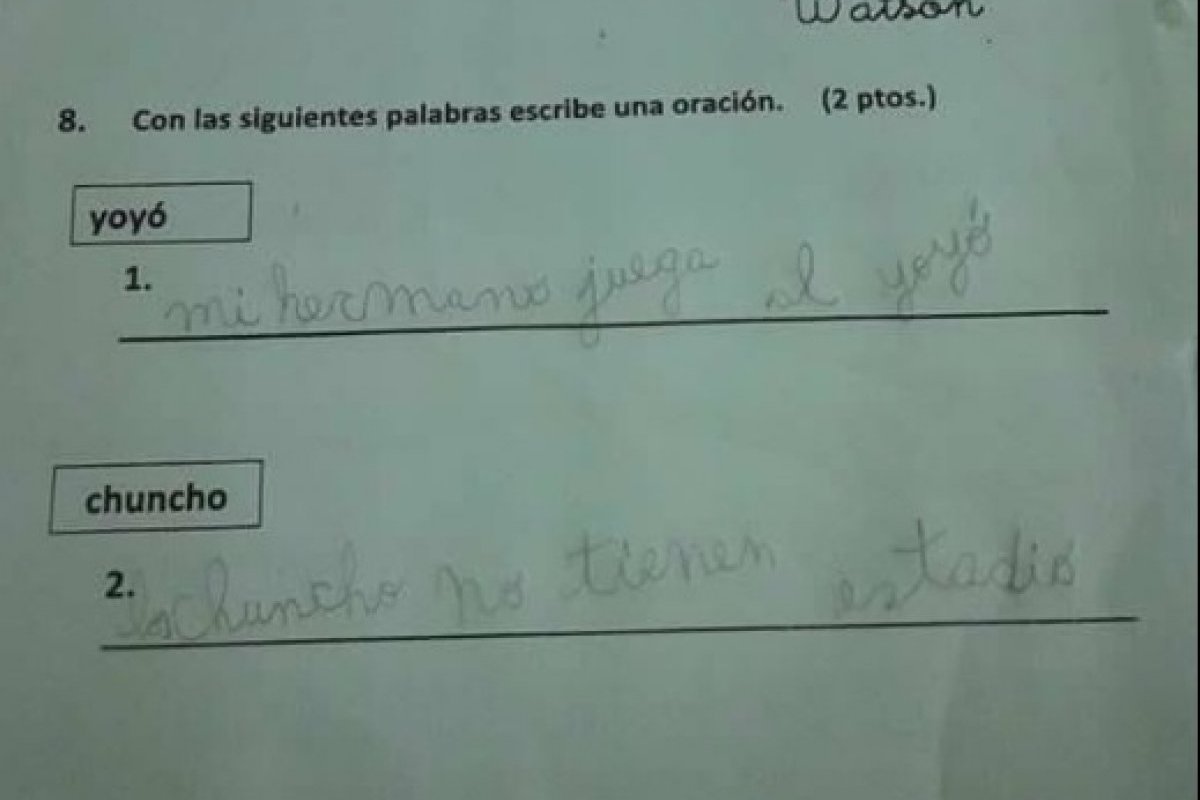 Watson
8. Con las siguientes palabras escribe una oración. (2 ptos.)
yoyó
1. mi hermano juega al yoyó
chuncho
2. los chuncho no tienen estadio